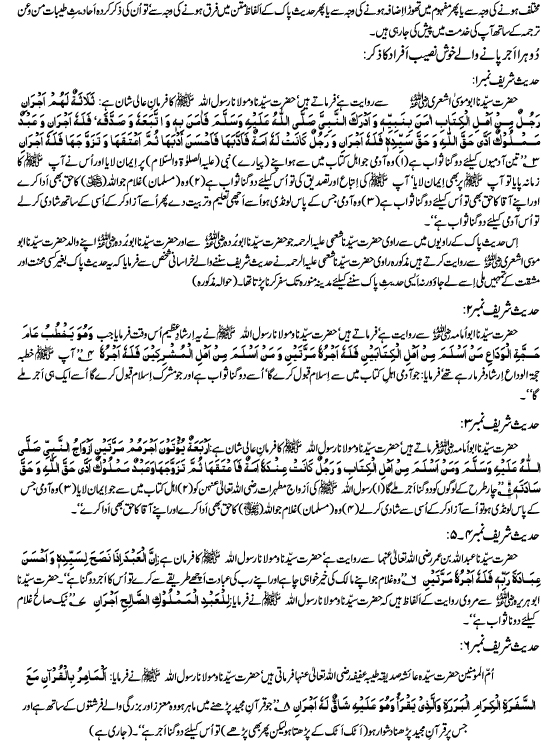 مختلف ہونے کی وجہ سے یا پھر مفہوم میں تھوڑا اضافہ ہونے کی وجہ سے یا پھر حدیث پاک کے الفاظ متن میں فرق ہونے کی وجہ سے تو اُن کی ذکر کردہ احادیث طیبات من و عن
ترجمہ کے ساتھ آپ کی خدمت میں پیش کی جارہی ہیں۔
دُوہرا اجر پانے والے خوش نصیب افراد کا ذکر:
حدیث شریف نمبر۱:
حضرت سیّدنا ابوموسیٰ اشعری رضی اللہ عنہ سے روایت ہے‘ فرماتے ہیں‘ حضرت سیّدنا و مولانا رسول اللہ ﷺ کا فرمانِ عالی شان ہے: ثَلَاثَةٌ لَهُمْ اَجْرَانِ
رَجُلٌ مِنْ اَهْلِ الْكِتَابِ اٰمَنَ بِنَبِيِّهٖ وَ اَدْرَكَ النَّبِيَّ صَلَّى اللهُ عَلَيْهِ وَسَلَّمَ فَاٰمَنَ بِهٖ وَ اتَّبَعَهٗ وَ صَدَّقَهٗ فَلَهٗ اَجْرَانِ وَ عَبْدٌ
مَمْلُوْكٌ اَدّٰى حَقَّ اللهِ وَ حَقَّ سَيِّدِهٖ فَلَهٗ اَجْرَانِ وَ رَجُلٌ كَانَتْ لَهٗ اَمَةٌ فَاَدَّبَهَا فَاَحْسَنَ اَدَبَهَا ثُمَّ اَعْتَقَهَا وَ تَزَوَّجَهَا فَلَهٗ اَجْرَانِ
۳؎ ’’تین آدمیوں کیلئے دوگنا ثواب ہے (۱) وہ آدمی جو اہل کتاب میں سے ہو اپنے (پیارے) نبی (علیہ الصلوٰۃ والسلام) پر ایمان لایا اور اُس نے آپ ﷺ کا
زمانہ پایا تو آپ ﷺ پر بھی ایمان لایا‘ آپ ﷺ کی اِتباع اور تصدیق کی تو اُس کیلئے دوگنا ثواب ہے (۲) وہ (مسلمان) غلام جو اللہ (ﷻ) کا حق بھی اَدا کرے
اور اپنے آقا کا حق بھی تو اُس کیلئے دوگنا ثواب ہے (۳) وہ آدمی جس کے پاس لونڈی ہو اُسے اچھی تعلیم و تربیت دے پھر اُسے آزاد کر کے اُسی کے ساتھ شادی کر لے
تو اُس آدمی کیلئے دوگنا ثواب ہے‘‘۔
اِس حدیث پاک کے راویوں میں سے راوی حضرت سیّدنا شعبی علیہ الرحمہ جو حضرت سیّدنا ابوبُردہ رضی اللہ عنہ سے اور حضرت سیّدنا ابوبردہ رضی اللہ عنہ اپنے والد حضرت سیّدنا ابو
موسیٰ اشعری رضی اللہ عنہ سے روایت کرتے ہیں‘ مذکورہ راوی حضرت سیّدنا شعبی علیہ الرحمہ نے حدیث شریف سننے والے خراسانی شخص سے فرمایا کہ یہ حدیث پاک بغیر کسی محنت اور
مشقت کے تمہیں ملی اِسے لے جاؤ ورنہ ایسی حدیث پاک سننے کیلئے مدینہ منورہ تک سفر کرنا پڑتا تھا۔ (حوالہ مذکورہ)
حدیث شریف نمبر۲:
حضرت سیّدنا ابوامامہ رضی اللہ عنہ سے روایت ہے‘ فرماتے ہیں‘ حضرت سیّدنا و مولانا رسول اللہ ﷺ نے یہ ارشادِ عظیم اُس وقت فرمایا جب وَهُوَ يَخْطُبُ عَامَ
حَجَّةِ الْوَدَاعِ مَنْ اَسْلَمَ مِنْ اَهْلِ الْكِتَابَيْنِ فَلَهٗ اَجْرُهٗ مَرَّتَيْنِ وَ مَنْ اَسْلَمَ مِنْ اَهْلِ الْمُشْرِكِيْنَ فَلَهٗ اَجْرُهٗ ۴؎ ’’آپ ﷺ خطبہ
حجۃ الوداع ارشاد فرما رہے تھے‘ فرمایا: جو آدمی اہلِ کتاب میں سے اِسلام قبول کرے گا‘ اُسے دوگنا ثواب ہے اور جو مشرک اِسلام قبول کرے گا‘ اُسے ایک ہی اَجر ملے
گا‘‘۔
حدیث شریف نمبر۳:
حضرت سیّدنا ابوامامہ رضی اللہ عنہ فرماتے ہیں‘ حضرت سیّدنا و مولانا رسول اللہ ﷺ کا فرمانِ عالی شان ہے: اَرْبَعَةٌ يُؤْتَوْنَ اَجْرَهُمْ مَرَّتَيْنِ اَزْوَاجُ النَّبِيِّ صَلَّى
اللهُ عَلَيْهِ وَسَلَّمَ وَمَنْ اَسْلَمَ مِنْ اَهْلِ الْكِتَابِ وَ رَجُلٌ كَانَتْ عِنْدَهٗ اَمَةٌ فَاَعْتَقَهَا ثُمَّ تَزَوَّجَهَا وَعَبْدٌ مَمْلُوْكٌ اَدّٰى حَقَّ اللهِ وَ حَقَّ
سَادَتِهٖ ۵؎ ’’چار طرح کے لوگوں کو دوگنا اَجر ملے گا (۱) رسول اللہ (ﷺ) کی اَزواج مطہرات رضی اللہ تعالیٰ عنہن کو (۲) اہل کتاب میں سے جو ایمان لایا (۳) وہ آدمی جس
کے پاس لونڈی ہو تو اُسے آزاد کر کے اُسی سے شادی کر لے (۴) وہ (مسلمان) غلام جو اللہ (ﷻ) کا حق بھی اَدا کرے اور اپنے آقا کا حق بھی اَدا کرے‘‘۔
حدیث شریف نمبر۴۔۵:
حضرت سیّدنا عبداللہ بن عمر رضی اللہ تعالیٰ عنہما سے روایت ہے‘ حضرت سیّدنا و مولانا رسول اللہ ﷺ کا فرمان ہے: اِنَّ الْعَبْدَ اِذَا نَصَحَ لِسَيِّدِهٖ وَ اَحْسَنَ
عِبَادَةَ رَبِّهٖ فَلَهٗ اَجْرُهٗ مَرَّتَيْنِ ۶؎ ’’وہ غلام جو اپنے مالک کی خیر خواہی چاہے اور اپنے رب کی عبادت اچھے طریقے سے کرے تو اُس کا اَجر دوگنا ہے‘‘۔ حضرت سیّدنا
ابوہریرہ رضی اللہ عنہ سے مروی روایت کے اَلفاظ ہیں کہ حضرت سیّدنا و مولانا رسول اللہ ﷺ نے فرمایا: لِلْعَبْدِ الْمَمْلُوْكِ الصَّالِحِ اَجْرَانِ ۷؎ ’’نیک صالح غلام
کیلئے دوگنا ثواب ہے‘‘۔
حدیث شریف نمبر۶:
اُمّ المؤمنین حضرت سیّدہ عائشہ صدیقہ طیبہ عفیفہ رضی اللہ تعالیٰ عنہا فرماتی ہیں‘ حضرت سیّدنا و مولانا رسول اللہ ﷺ نے فرمایا: اَلْمَاهِرُ بِالْقُرْآنِ مَعَ
السَّفَرَةِ الْكِرَامِ الْبَرَرَةِ وَالَّذِيْ يَقْرَاُ وَهُوَ عَلَيْهِ شَاقٌّ لَهٗ اَجْرَانِ ۸؎ ’’جو قرآنِ مجید پڑھنے میں ماہر ہو وہ معزز اور بزرگی والے فرشتوں کے ساتھ ہے اور
جس پر قرآنِ مجید پڑھنا دشوار ہو (اٹک اٹک کے پڑھتا ہو لیکن پھر بھی پڑھے) تو اُس کیلئے دوگنا اَجر ہے‘‘۔ (جاری ہے)